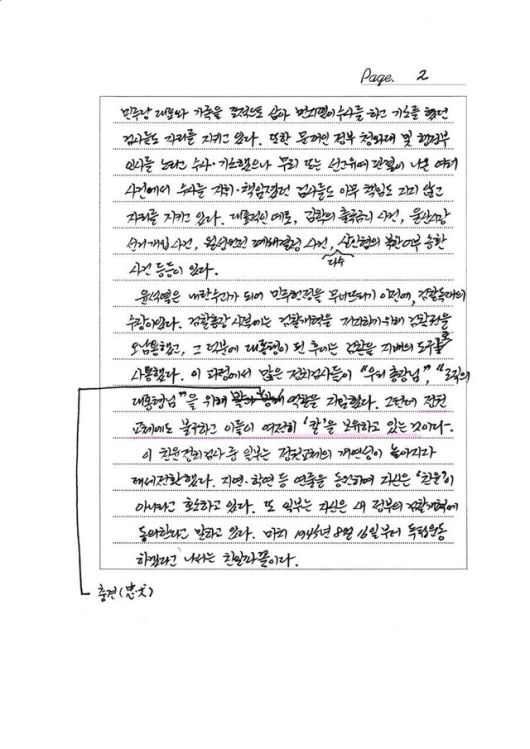 Page. 2
민주당 대표와 가족을 표적으로 삼아 먼지떨이 수사를 하고 기소를 했던
검사들도 자리를 지키고 있다. 또한 문재인 정부 청와대 및 행정부
인사를 노리고 수사·기소했으나 무죄 또는 선고유예 판결이 나온 여러
사건에서 수사를 지휘·책임졌던 검사들도 아무 책임도 지지 않고
자리를 지키고 있다. 대표적인 예로, 김학의 출국금지 사건, 울산시장
선거개입 사건, 월성원전 폐쇄결정 사건, 살인혐의 북한어부 송환
다수
사건 등등이 있다.
윤석열은 내란수괴가 되어 민주헌정을 무너뜨리기 이전에, 검찰독재의
수장이었다. 검찰총장 시절에는 검찰개혁을 저지하기 위해 검찰권을
오남용했고, 그 덕분에 대통령이 된 후에는 검찰을 지배의 도구로
사용했다. 이 과정에서 많은 정치검사들이 "우리 총장님", "조직의
대통령님"을 위해 역할을 자임했다. 그런데 정권
교체에도 불구하고 이들이 여전히 '칼'을 보유하고 있는 것이다.
이 친윤정치검사 중 일부는 정권교체의 개연성이 높아지자
태세전환했다. 지연·학연 등 연줄을 동원하여 자신은 '친윤'이
아니라고 호소하고 있다. 또 일부는 자신은 새 정부의 검찰개혁에
동의한다고 말하고 있다. 마치 1945년 8월 16일부터 독립운동
하겠다고 나서는 친일파 꼴이다.
충견(忠犬)